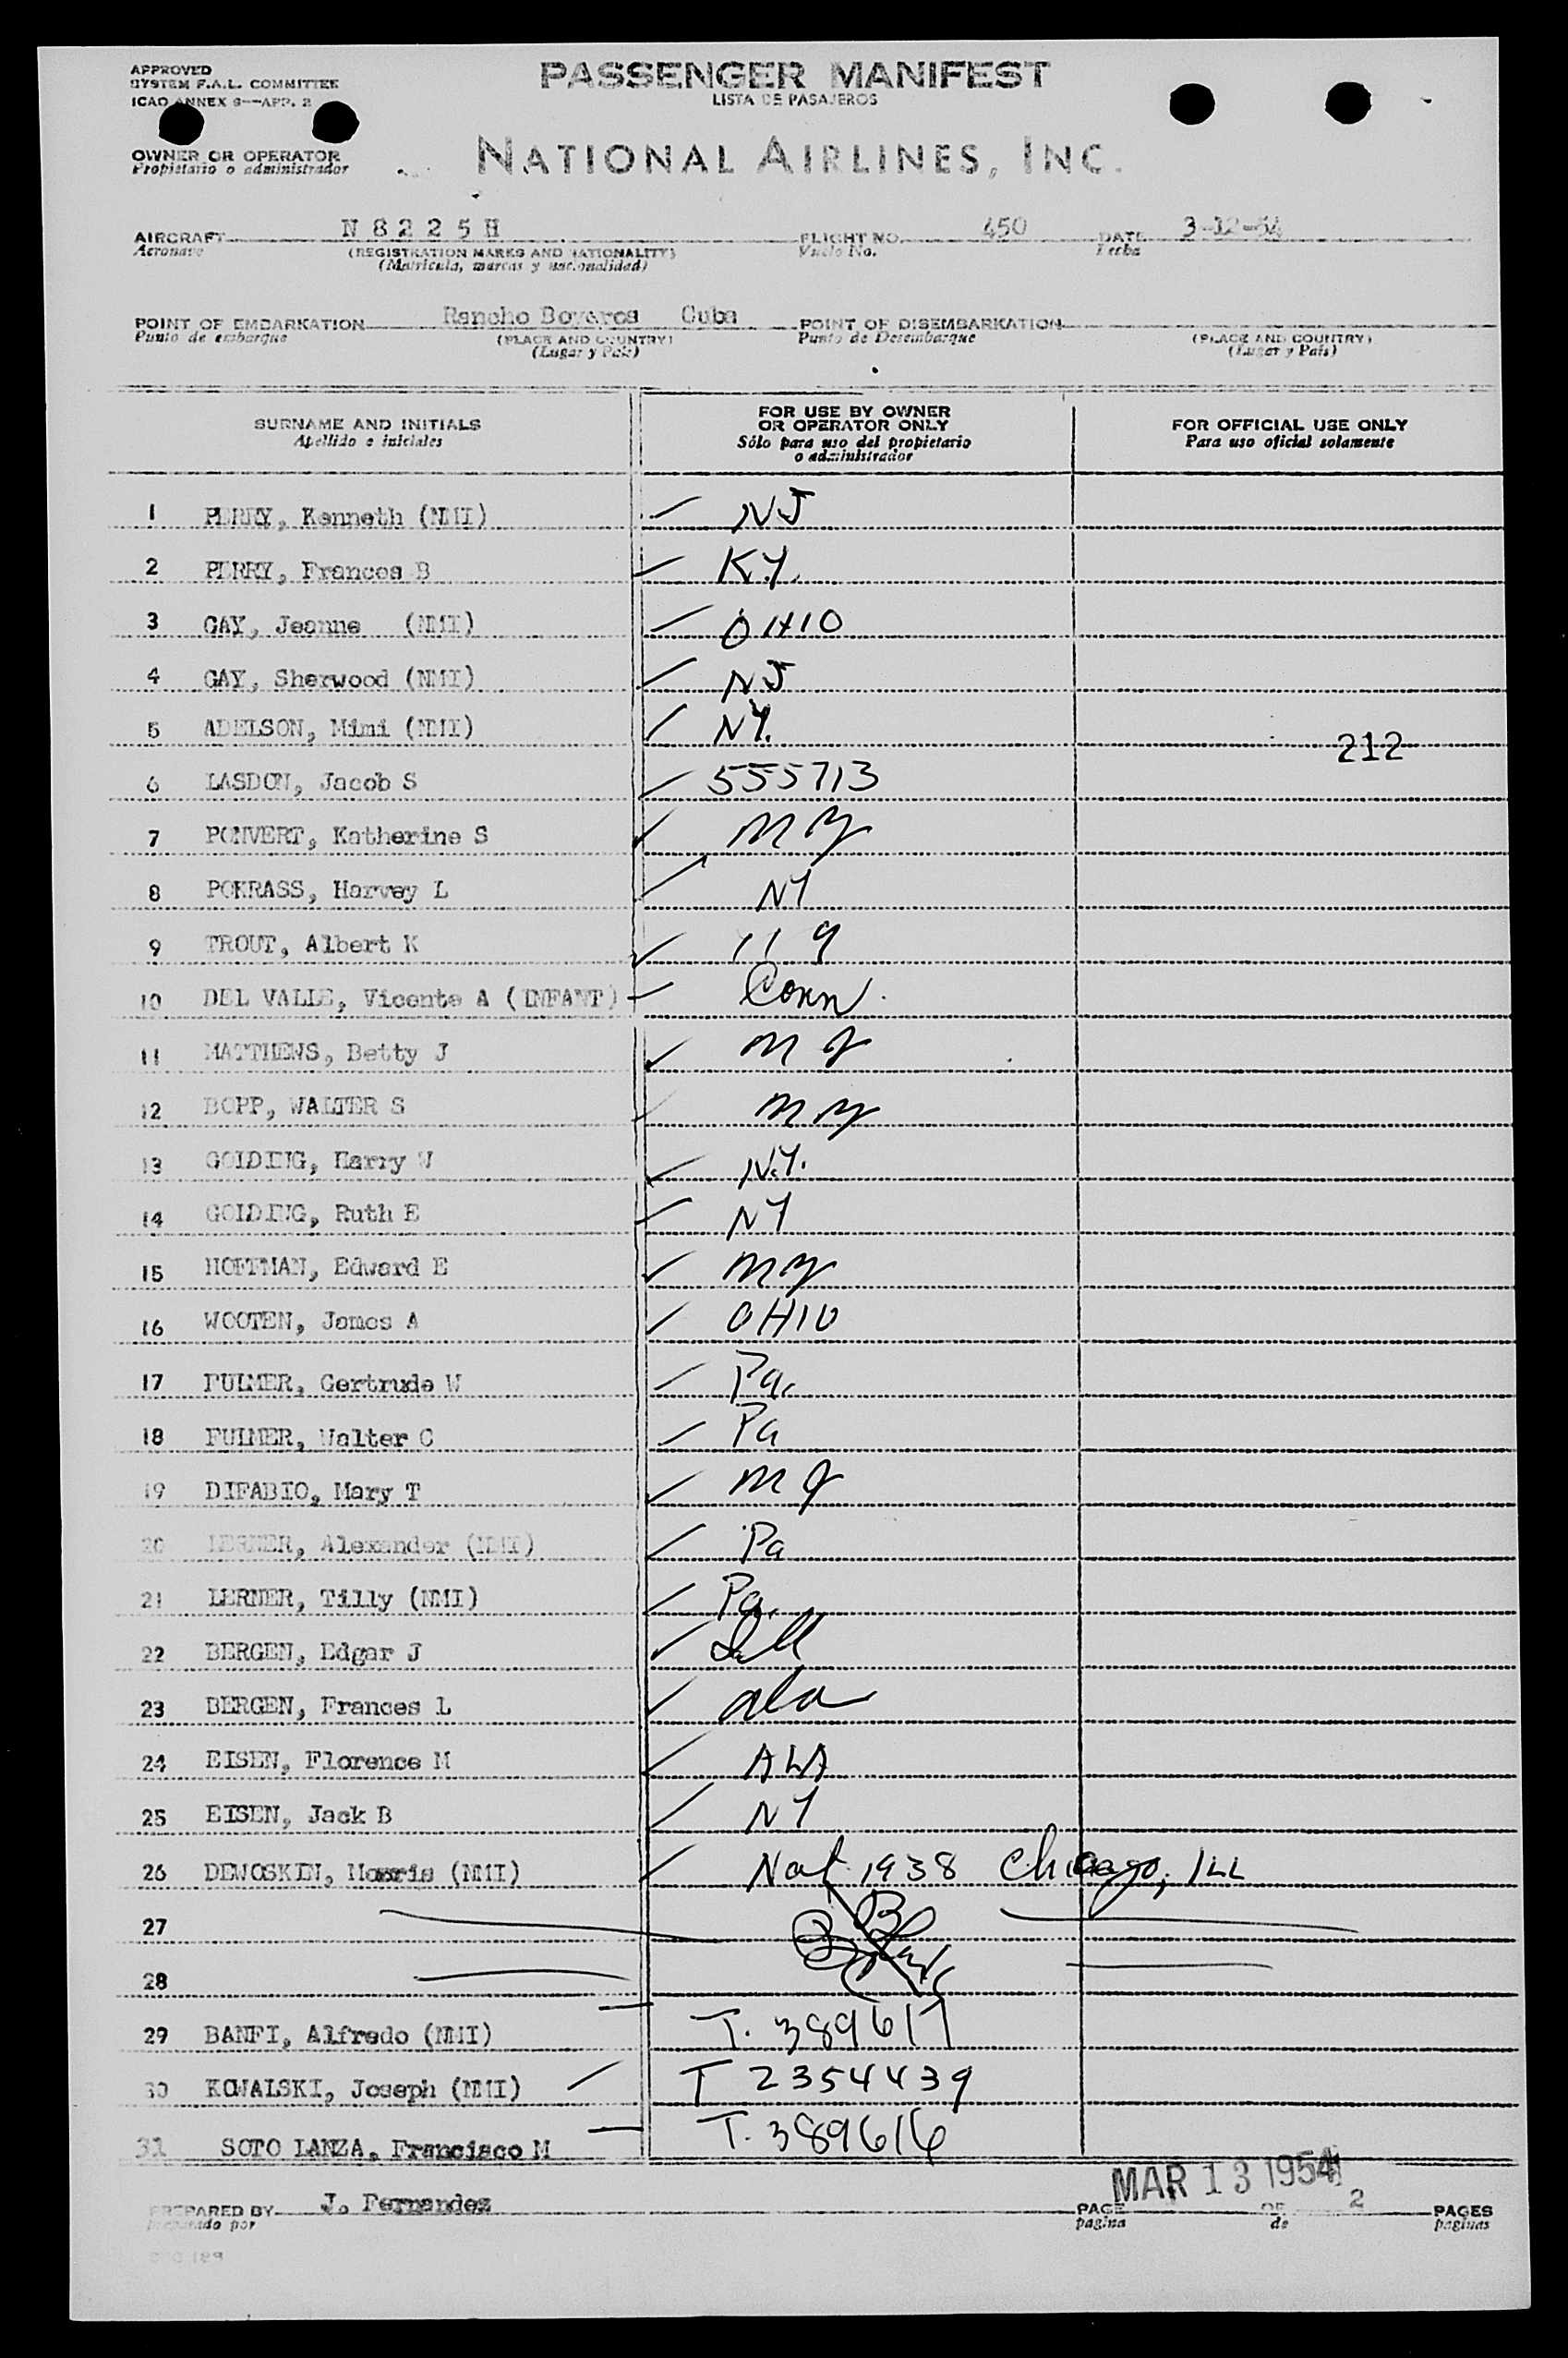 APPROVED
SYSTEM F.A.L. COMMITTEE
ICAO ANNEX 9—APP. 2
PASSENGER MANIFEST
LISTA DE PASAJEROS
OWNER OR OPERATOR
Propietario o administrador
NATIONAL AIRLINES, INC.
AIRCRAFT N 8 2 2 5 H FLIGHT NO. 450 DATE 3-12-54
Aeronave (REGISTRATION MARKS AND NATIONALITY) Vuelo No. Fecha
(Matricula, marcas y nacionalidad)
POINT OF EMBARKATION Rancho Boyeros Cuba POINT OF DISEMBARKATION
Punto de embarque (PLACE AND COUNTRY) Punto de Desembarque (PLACE AND COUNTRY)
(Lugar y Pais) (Lugar y Pais)
SURNAME AND INITIALS FOR USE BY OWNER OR OPERATOR ONLY FOR OFFICIAL USE ONLY
Apellido e iniciales Sólo para uso del propietario o administrador Para uso oficial solamente
1 PERRY, Kenneth (NMI) NJ
2 PERRY, Frances B KY.
3 GAY, Jeanne (NMI) OHIO
4 GAY, Sherwood (NMI) NJ
5 ADELSON, Mimi (NMI) NY.
212
6 LASDON, Jacob S 555713
7 PONVERT, Katherine S NY
8 POKRASS, Harvey L NY
9 TROUT, Albert K
10 DEL VALLE, Vicente A (INFANT) Conn.
11 MATTHEWS, Betty J NJ
12 BOPP, WALTER S NY
13 GOLDING, Harry W N.Y.
14 GOLDING, Ruth E NY
15 HOFFMAN, Edward E NY
16 WOOTEN, James A OHIO
17 FULMER, Gertrude W Pa.
18 FULMER, Walter C Pa
19 DIFABIO, Mary T NJ
20 LERNER, Alexander (NMI) Pa
21 LERNER, Tilly (NMI) Pa.
22 BERGEN, Edgar J Ill
23 BERGEN, Frances L ala
24 EISEN, Florence M ALA
25 EISEN, Jack B NY
26 DEWOSKIN, Morris (NMI) Nat. 1938 Chicago, ILL
27
28
29 BANFI, Alfredo (NMI) T. 389617
30 KOWALSKI, Joseph (NMI) T 2354439
31 SOTO LANZA, Francisco M T. 389616
MAR 13 1954
PREPARED BY J. Fernandez PAGE OF 2 PAGES
preparado por pagina de paginas